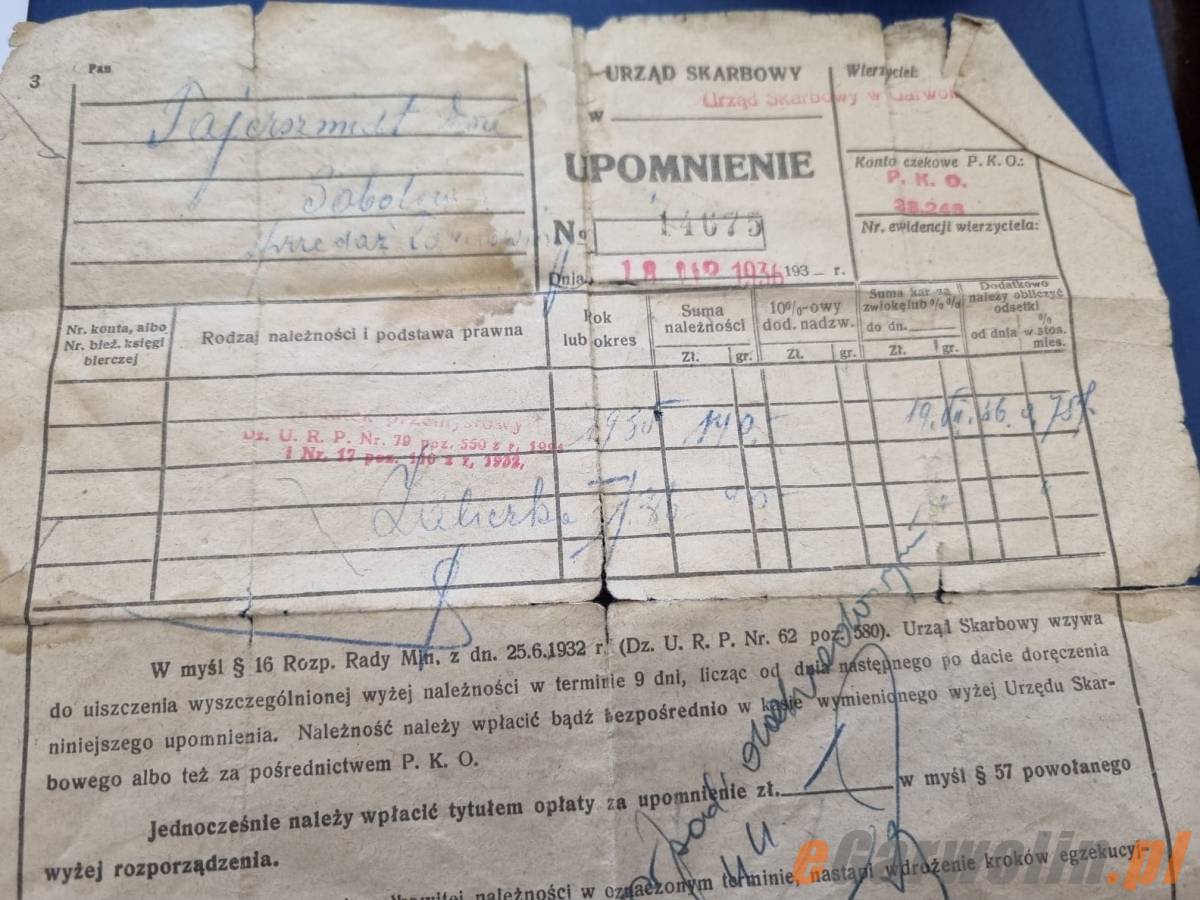 3
Pan
Pajerszmidt
Sobolew
URZĄD SKARBOWY
w Urząd Skarbowy w Garwol
UPOMNIENIE
No 14675
Dnia 1936 193 — r.
Wierzyciel:
Konto czekowe P. K. O.:
P. K. O.
Nr. ewidencji wierzyciela:
Nr. konta, albo
Nr. bież. księgi
bierczej
Rodzaj należności i podstawa prawna
Rok
lub okres
Suma
należności
Zł. gr.
10%-owy
dod. nadzw.
Zł. gr.
Suma kar za
zwłokę lub % %
do dn.
Zł. gr.
Dodatkowo
należy obliczyć
odsetki
od dnia
%
w stos.
mies.
przemysłowy
Dz. U. R. P. Nr. 79 poz. 550 z r.
i Nr. 17 poz. z r. 1932.
1935 140.-
Zaliczka
W myśl § 16 Rozp. Rady Min. z dn. 25.6.1932 r. (Dz. U. R. P. Nr. 62 poz. 580). Urząd Skarbowy wzywa
do uiszczenia wyszczególnionej wyżej należności w terminie 9 dni, licząc od dnia następnego po dacie doręczenia
niniejszego upomnienia. Należność należy wpłacić bądź bezpośrednio w kasie wymienionego wyżej Urzędu Skar-
bowego albo też za pośrednictwem P. K. O.
Jednocześnie należy wpłacić tytułem opłaty za upomnienie zł. w myśl § 57 powołanego
wyżej rozporządzenia.
należności w oznaczonym terminie, nastąpi wdrożenie kroków egzekucyj-
eGarwolin.pl